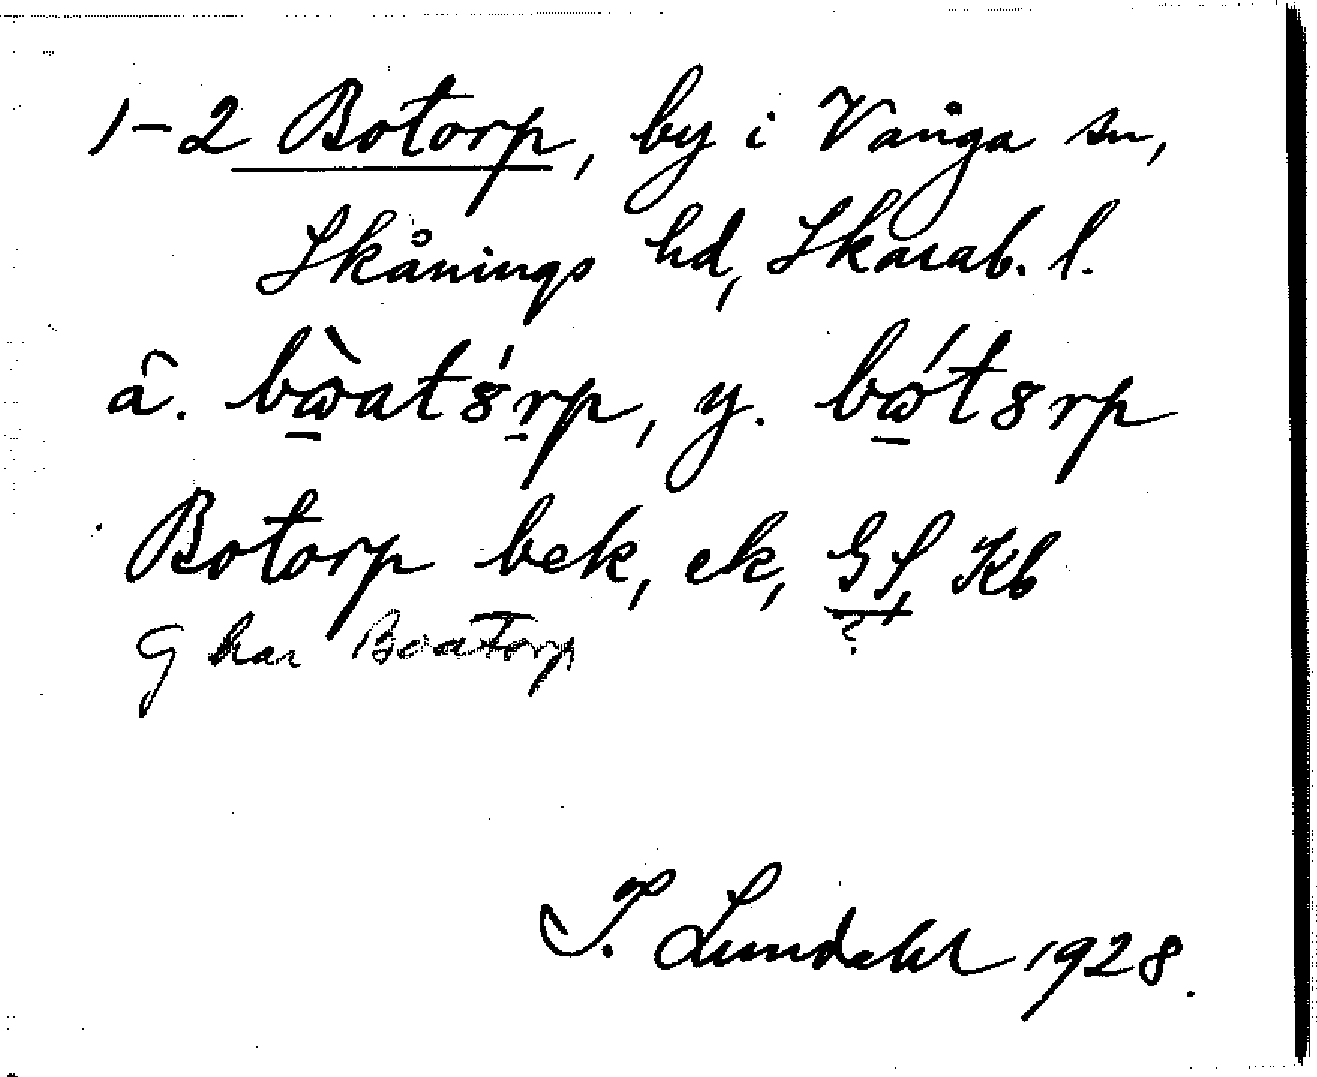 1-2 Botorp, by i Vånga sn,
Skånings hd, Skarab. l.
ä. bὼat8́rp, y. bώt8rp
Botorp bek, ek, GS, Kb
?
G har Boatorp
I. Lundahl 1928.